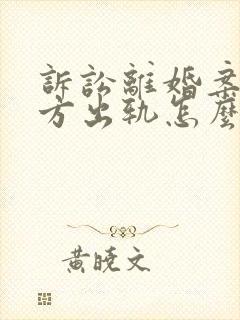 訴訟離婚案
方出軌怎麼
黃曉文